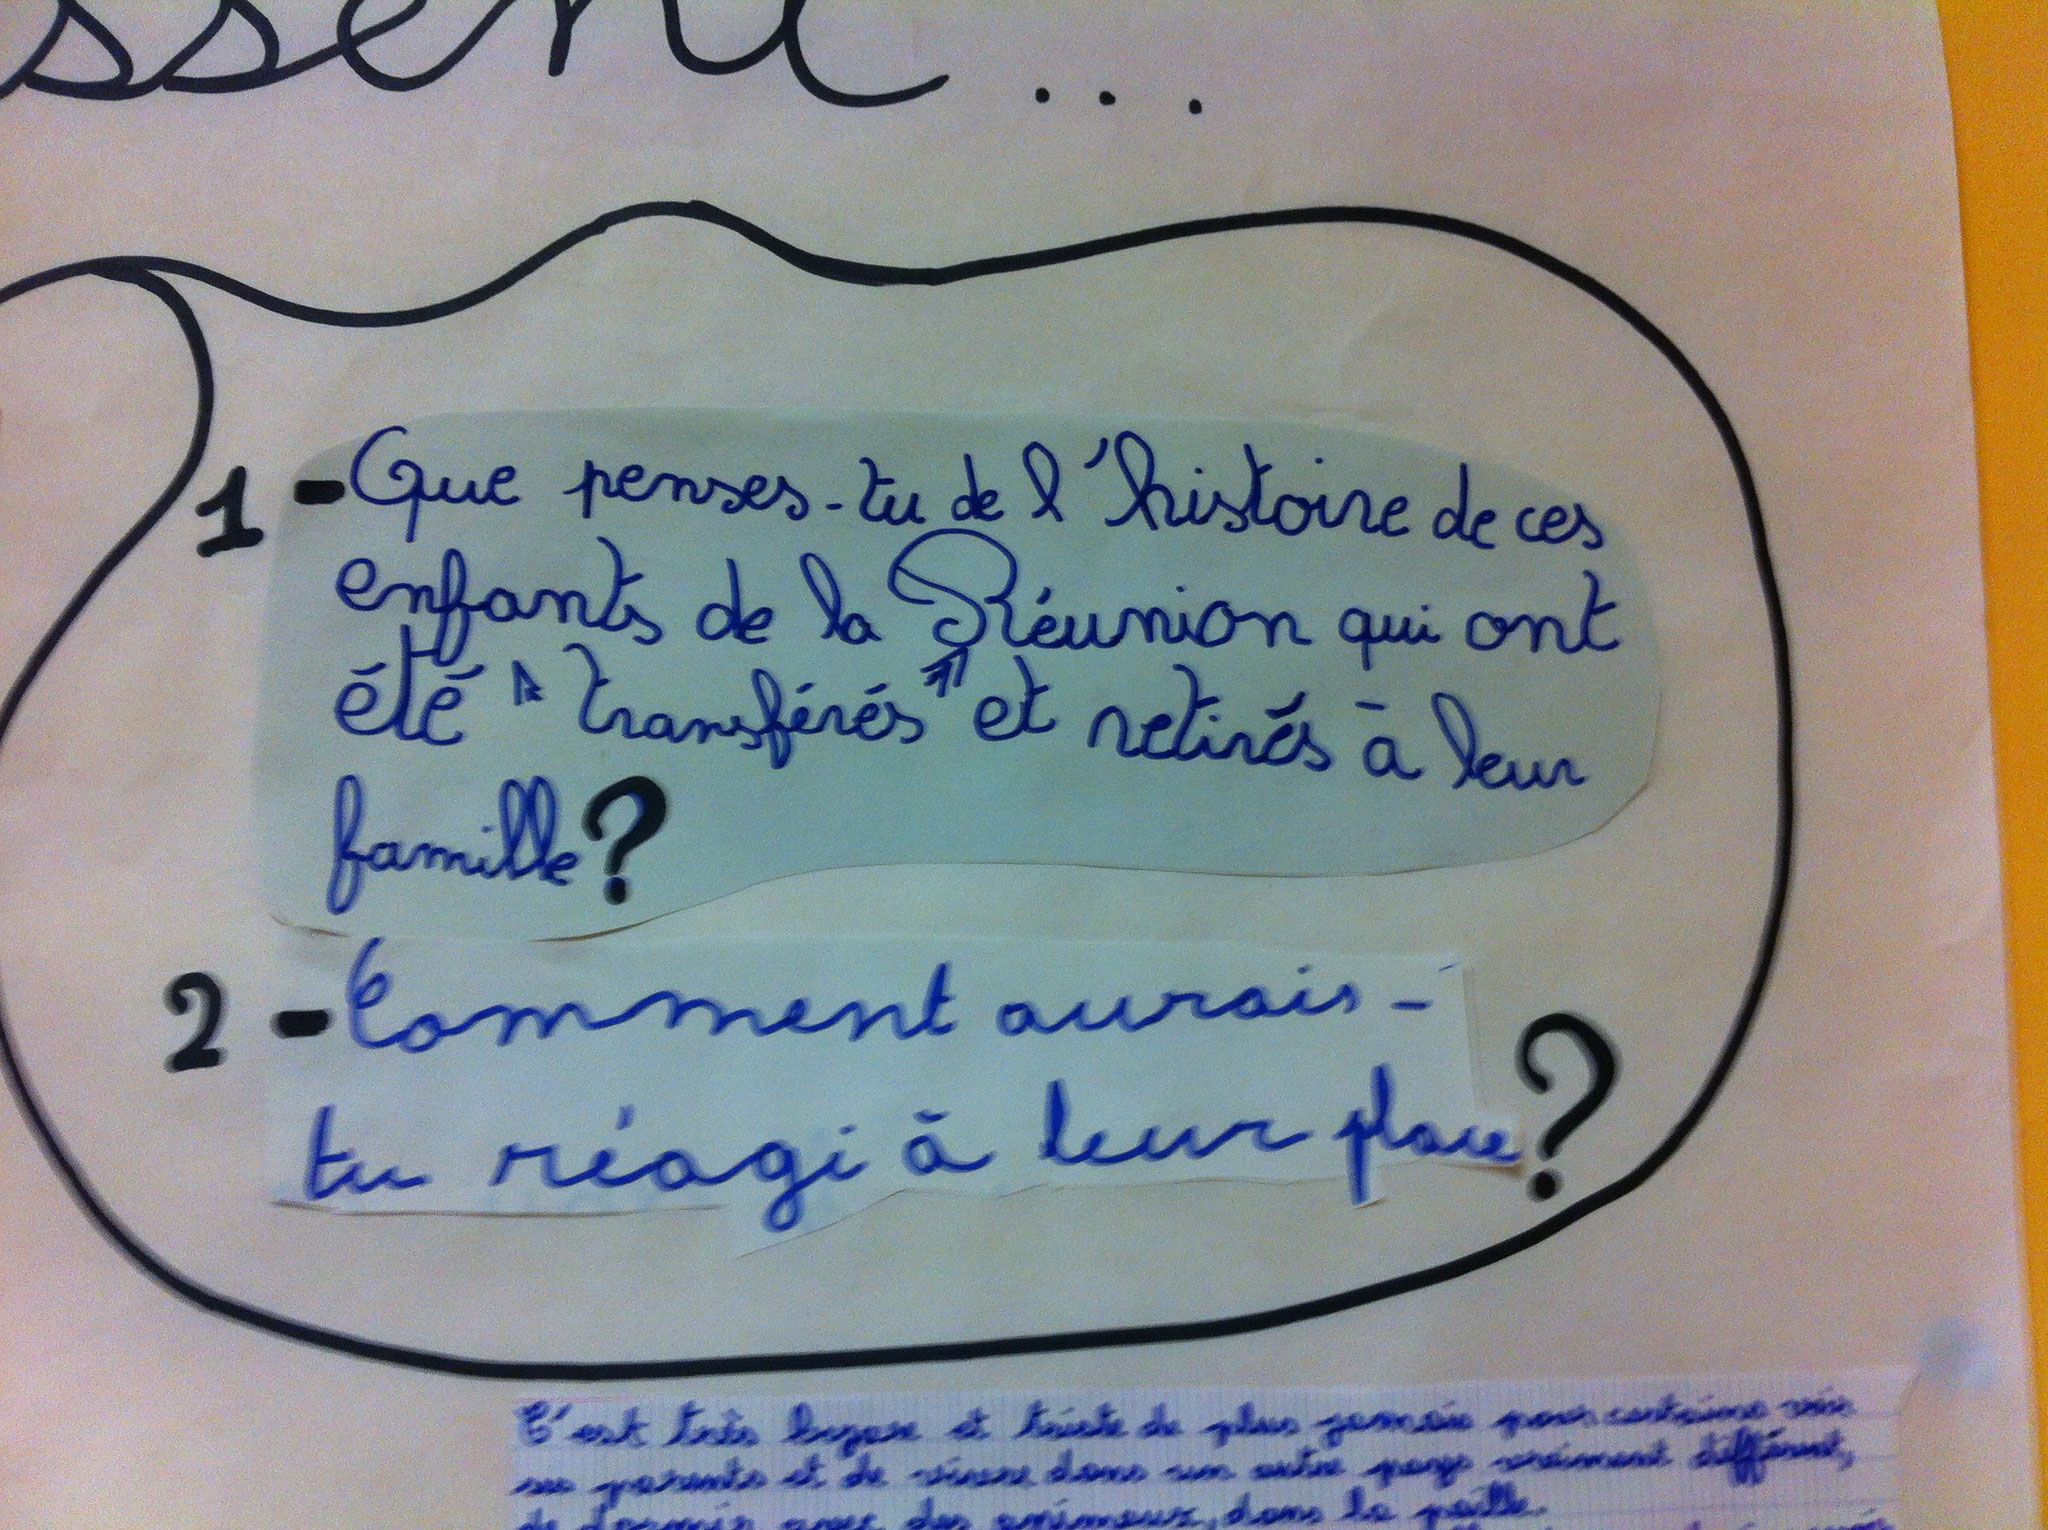 ssent...
1-Que penses-tu de l'histoire de ces
enfants de la Réunion qui ont
été "transférés" et retirés à leur
famille?
2-Comment aurais-
tu réagi à leur place?
C'est très bizare et triste de plus jamais pour certains voir
ses parents et de vivre dans un autre pays vraiment différent,
de dormir avec des animeux, dans la paille.